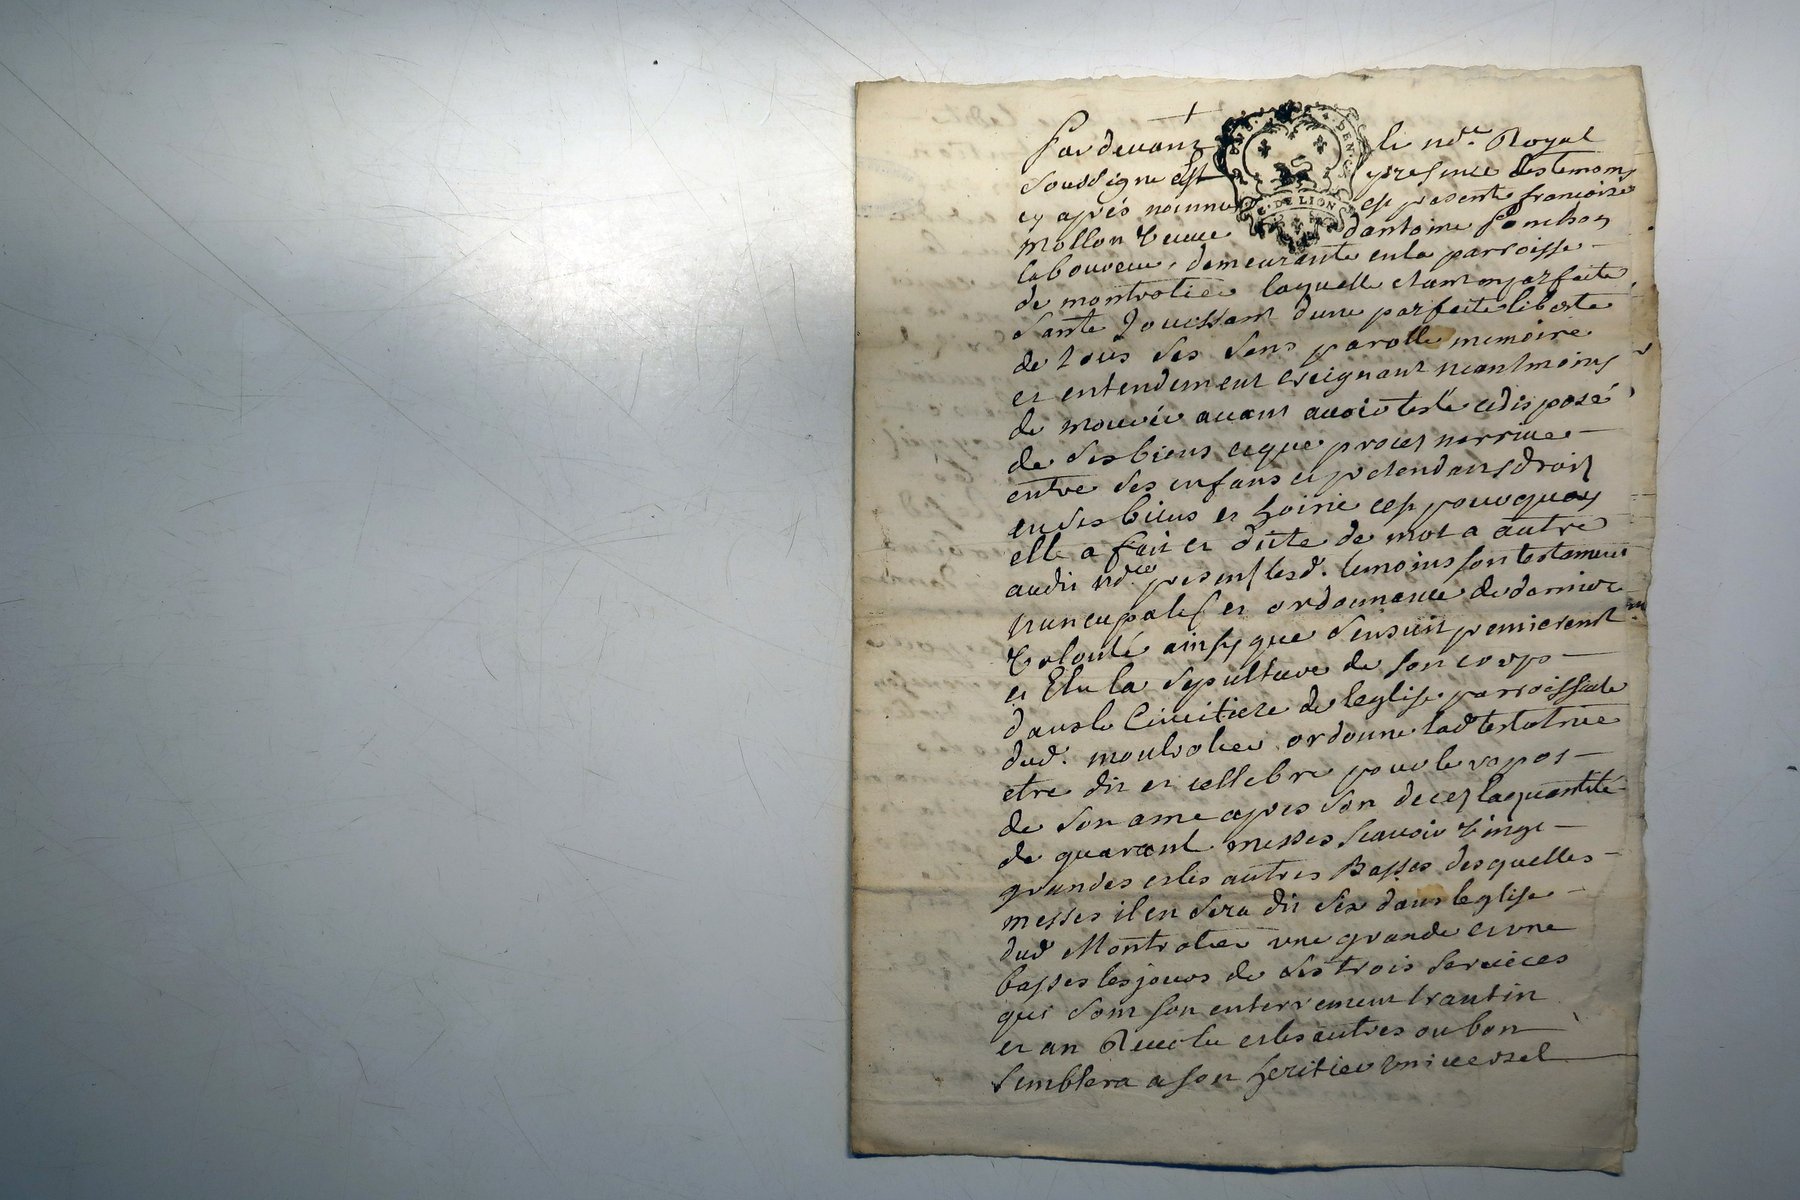 Pardevant le no.re Royal
soussigné est presence des temoins
cy aprés nommes est presente francoise
mollon veuve dantoine Ponchon
laboureur, demeurante en la parroisse
de montrotier laquelle etant en parfaite
santé Jouissant dune parfaite liberté
de tous ses sens parolle memoire
et entendement craignant neantmoins
de mourir avant avoir testé et disposé
de ses biens et que proces narrive
entre ses enfans et pretendans droit
en ses biens et hoirie cest pourquoy
elle a fait et dicte de mot a autre
audit no.re presens lesd. temoins son testament
nuncupatif et ordonnance de derniere
volonté ainsy que sensuit premierement
et Elu la sepulture de son corps
dans le Cimitiere de leglise parroissialle
dud. montrotier ordonne lad. testatrice
etre dit et cellebré pour le repos
de son ame apres son deces la quantité
de quarant messes scavoir vingt
grandes et les autres Basses desquelles
messes il en sera dit six dans leglise
dud. Montrotier une grande et une
basses les jours de ses trois services
qui sont son enterrement trantin
et an Revolu et les autres ou bon
semblera a son heritier universel
G. DE LION